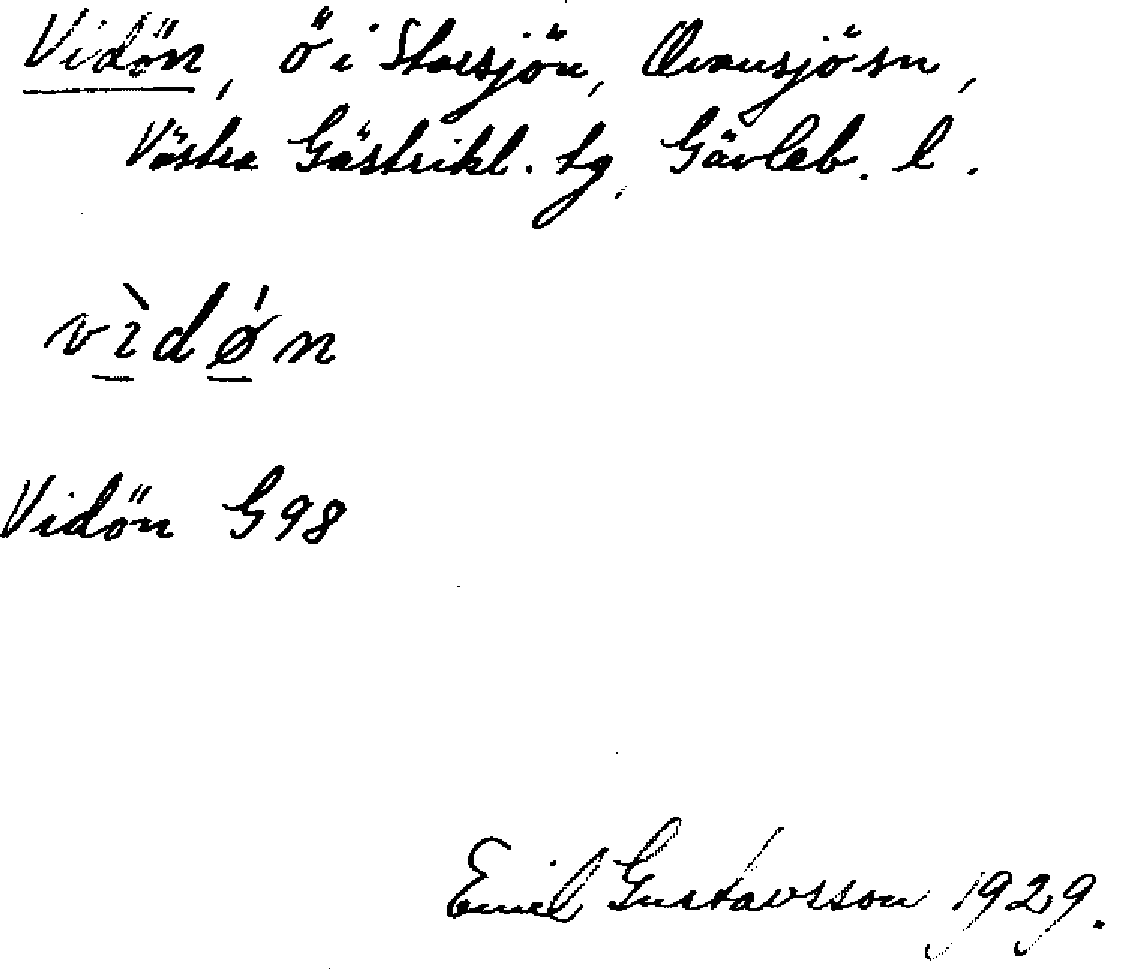 Vidön, ö i Storsjön, Ovansjö sn,
Västra Gästrikl. tg. Gävleb. l.
vìdǿn
Vidön G98
Emil Gustavsson 1929.